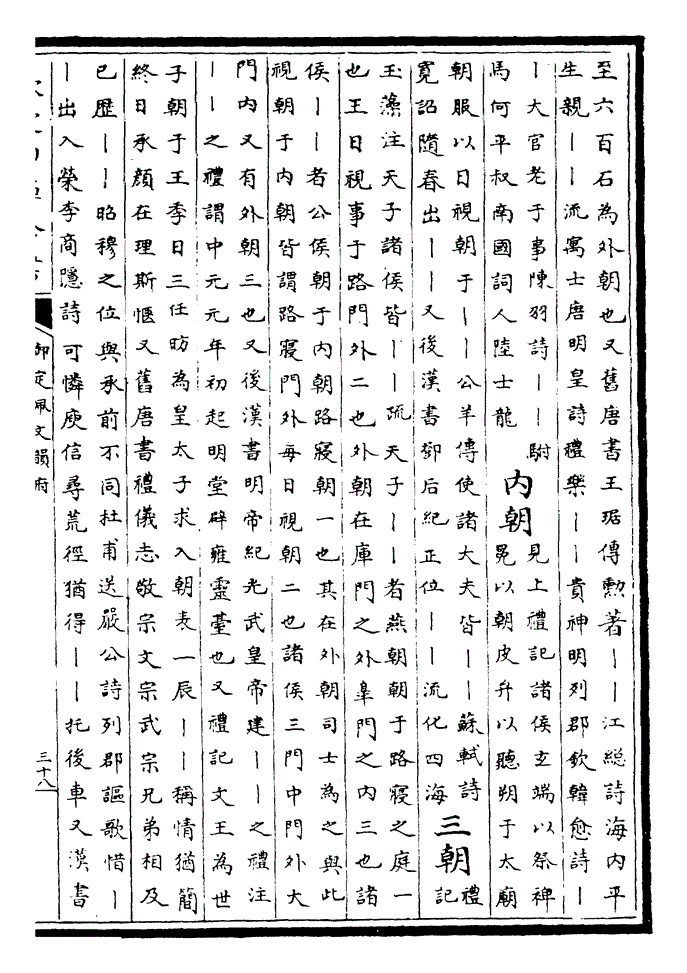 至六百石為外朝也又舊唐書王琚傳勲著丨丨江總詩海内平
生親丨丨流寓士唐明皇詩禮樂丨丨貴神明列郡欽韓愈詩丨
丨大官老于事陳羽詩丨丨駙
馬何平叔南國詞人陸士龍
内朝
見上禮記諸侯玄端以祭裨
冕以朝皮弁以聽朔于太廟
朝服以日視朝于丨丨公羊傳使諸大夫皆丨丨蘇軾詩
寛詔隨春出丨丨又後漢書鄧后紀正位丨丨流化四海
三朝
禮
記
玉藻注天子諸侯皆丨丨疏天子丨丨者燕朝朝于路寢之庭一
也王日視事于路門外二也外朝在庫門之外臯門之内三也諸
侯丨丨者公侯朝于内朝路寢朝一也其在外朝司士為之與此
視朝于内朝皆謂路寢門外每日視朝二也諸侯三門中門外大
門内又有外朝三也又後漢書明帝紀光武皇帝建丨丨之禮注
丨丨之禮謂中元元年初起明堂辟雍靈臺也又禮記文王為世
子朝于王季日三任昉為皇太子求入朝表一辰丨丨稱情猶簡
終日承顔在理斯愜又舊唐書禮儀志敬宗文宗武宗兄弟相及
已歴丨丨昭穆之位與承前不同杜甫送嚴公詩列郡謳歌惜丨
丨出入榮李商隱詩可憐庾信尋荒徑猶得丨丨托後車又漢書
御定佩文韻府
三十八